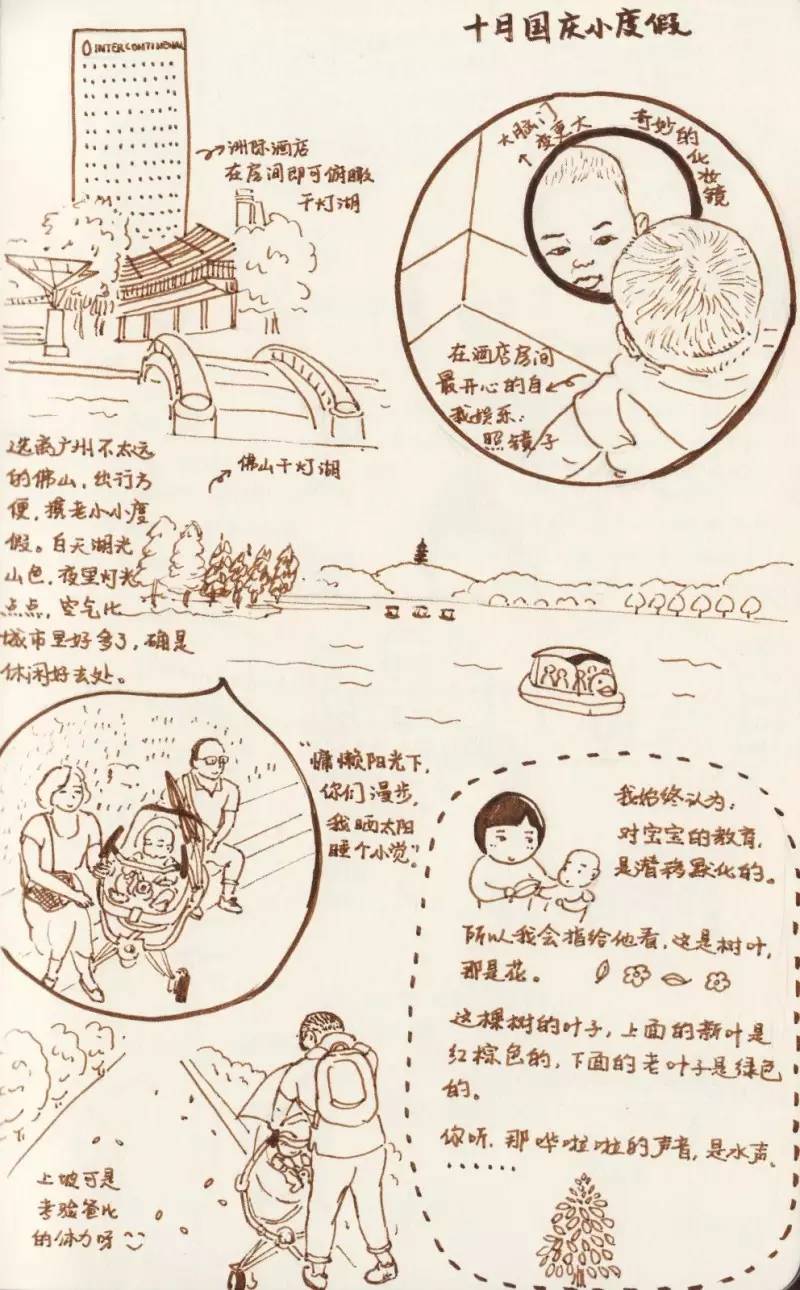 十月国庆小度假
INTERCONTINENAL
洲际酒店
在房间即可俯瞰
千灯湖
大脑门
变更大
奇妙的
化妆镜
在酒店房间
最开心的自
我娱乐：
照镜子
佛山千灯湖
选离广州不太远
的佛山，出行方
便，携老小小度
假。白天湖光
山色，夜里灯光
点点，空气比
城市里好多了，确是
休闲好去处。
“慵懒阳光下，
你们漫步，
我晒太阳
睡个小觉”。
我始终认为：
对宝宝的教育，
是潜移默化的。
所以我会指给他看，这是树叶，
那是花。
这棵树的叶子，上面的新叶是
红棕色的，下面的老叶子是绿色
的。
你听，那哗啦啦的声音，是水声。
……
上坡可是
考验爸比
的体力呀